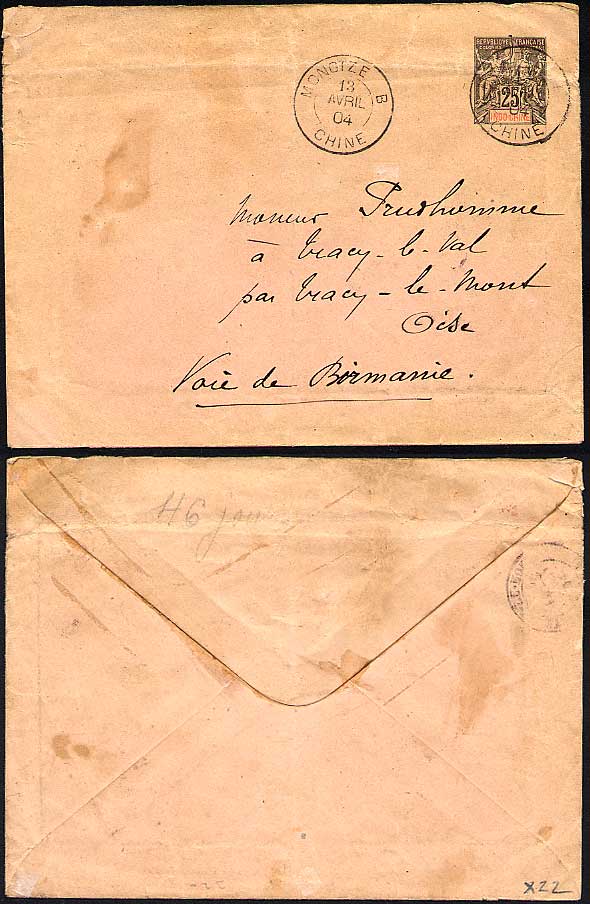 MONGTZE B
13
AVRIL
04
CHINE
REPUBLIQUE FRANÇAISE
COLONIES
25
INDO-CHINE
CHINE
Monsieur Prudhomme
à Tracy-le-Val
par Tracy-le-Mont
Oise
Voie de Birmanie.
46
X22